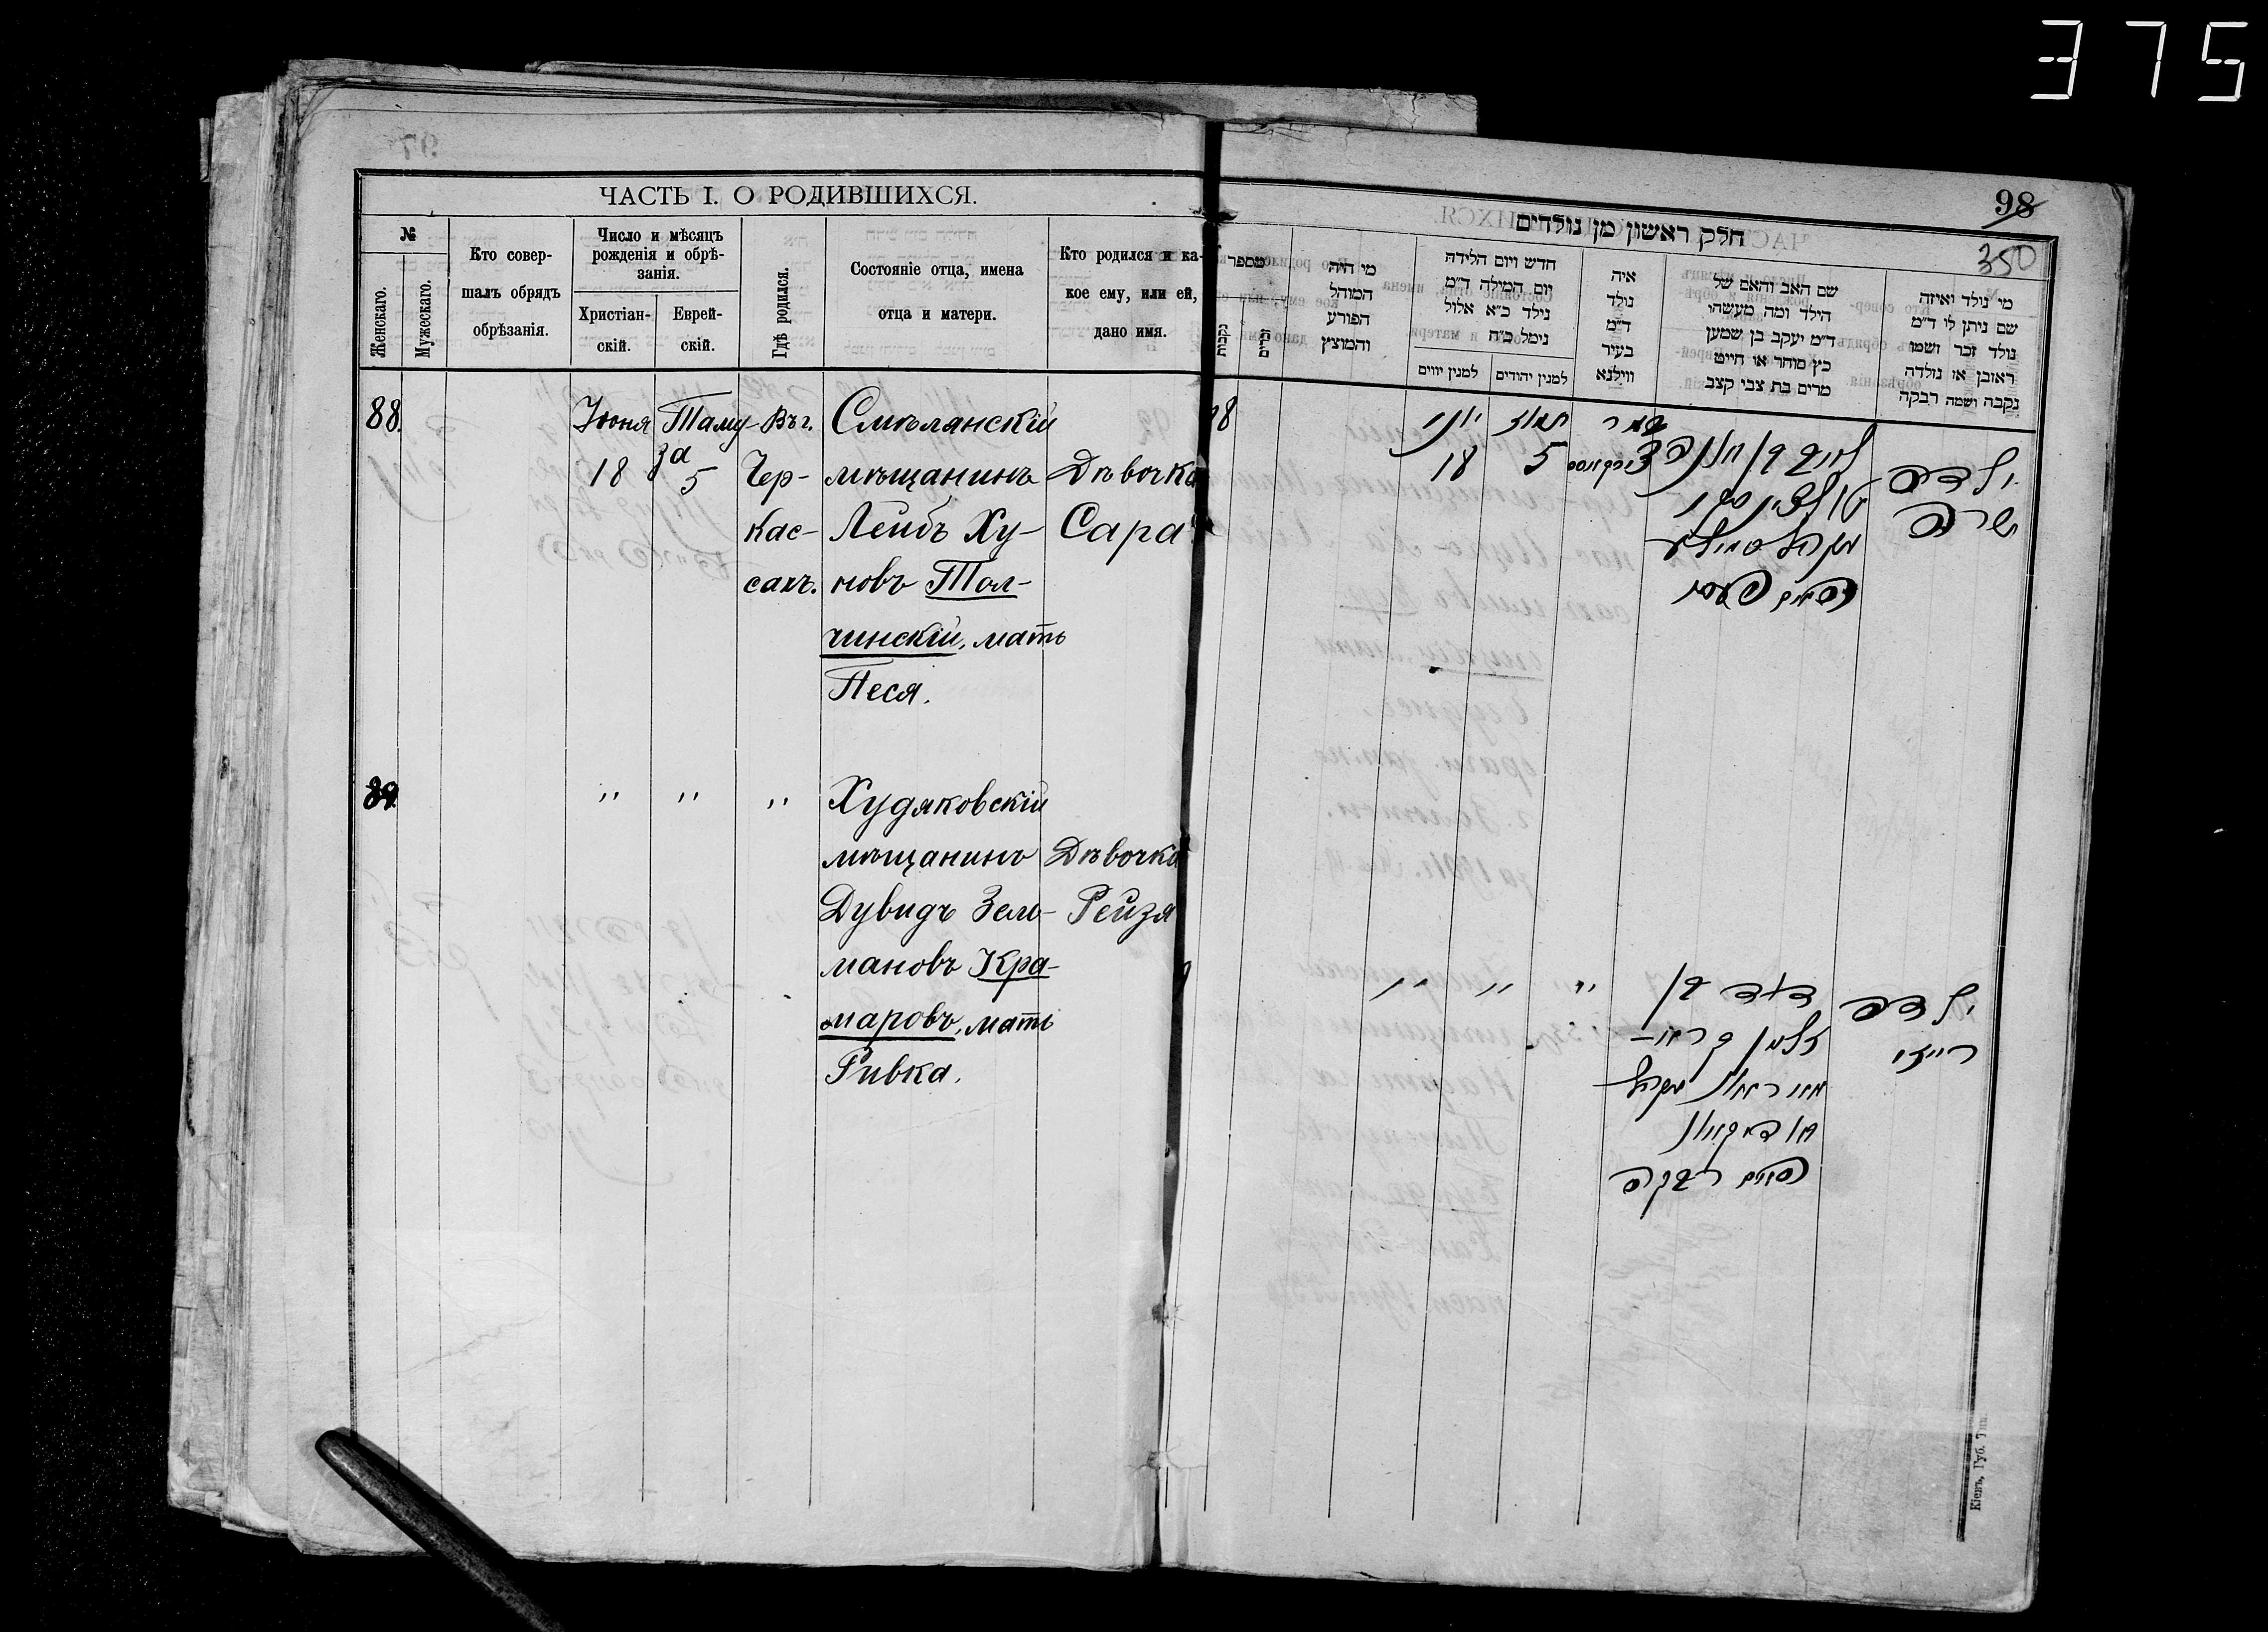 375
98
350
ЧАСТЬ I. О РОДИВШИХСЯ.
№
Женскаго.
Мужескаго.
Кто совер-
шалъ обрядъ
обрѣзанія.
Число и мѣсяцъ
рожденія и обрѣ-
занія.
Христіан-
скій.
Еврей-
скій.
Гдѣ родился.
Состояніе отца, имена
отца и матери.
Кто родился и ка-
кое ему, или ей,
дано имя.
88.
Іюня
18
Таму-
за
5
Въ г.
Чер-
кас-
сахъ.
Смѣлянскій
мѣщанинъ
Лейбъ Ху-
новъ Тол-
чинскій, мать
Песя.
Дѣвочка
Сара
39
" " "
Худяковскій
мѣщанинъ
Дувидъ Зель-
мановъ Кра-
маровъ, мать
Ривка.
Дѣвочка
Рейзя
חלק ראשון מן נולדים
מספר
נקבות
זכרים
מי היה
המוהל
הפורע
והמוצץ
חדש ויום הלידה
ויום המילה ד"מ
נילד כ"א אלול
נימל כ"ח
למנין יווים
למנין יהודים
איה
נולד
ד"מ
בעיר
ווילנא
שם האב והאם של
הילד ומה מעשהו
ד"מ יעקב בן שמעון
כץ סוחר או חייט
מרים בת צבי קצב
מי נולד ואיזה
שם ניתן לו ד"מ
נולד זכר ושמו
ראובן או נולדה
נקבה ושמה רבקה
8
יוני
18
תמוז
5
ילדה
שרה
" " "
דוד בן
זלמן
ילדה
רייזי
Кіевъ, Губ. Тип.